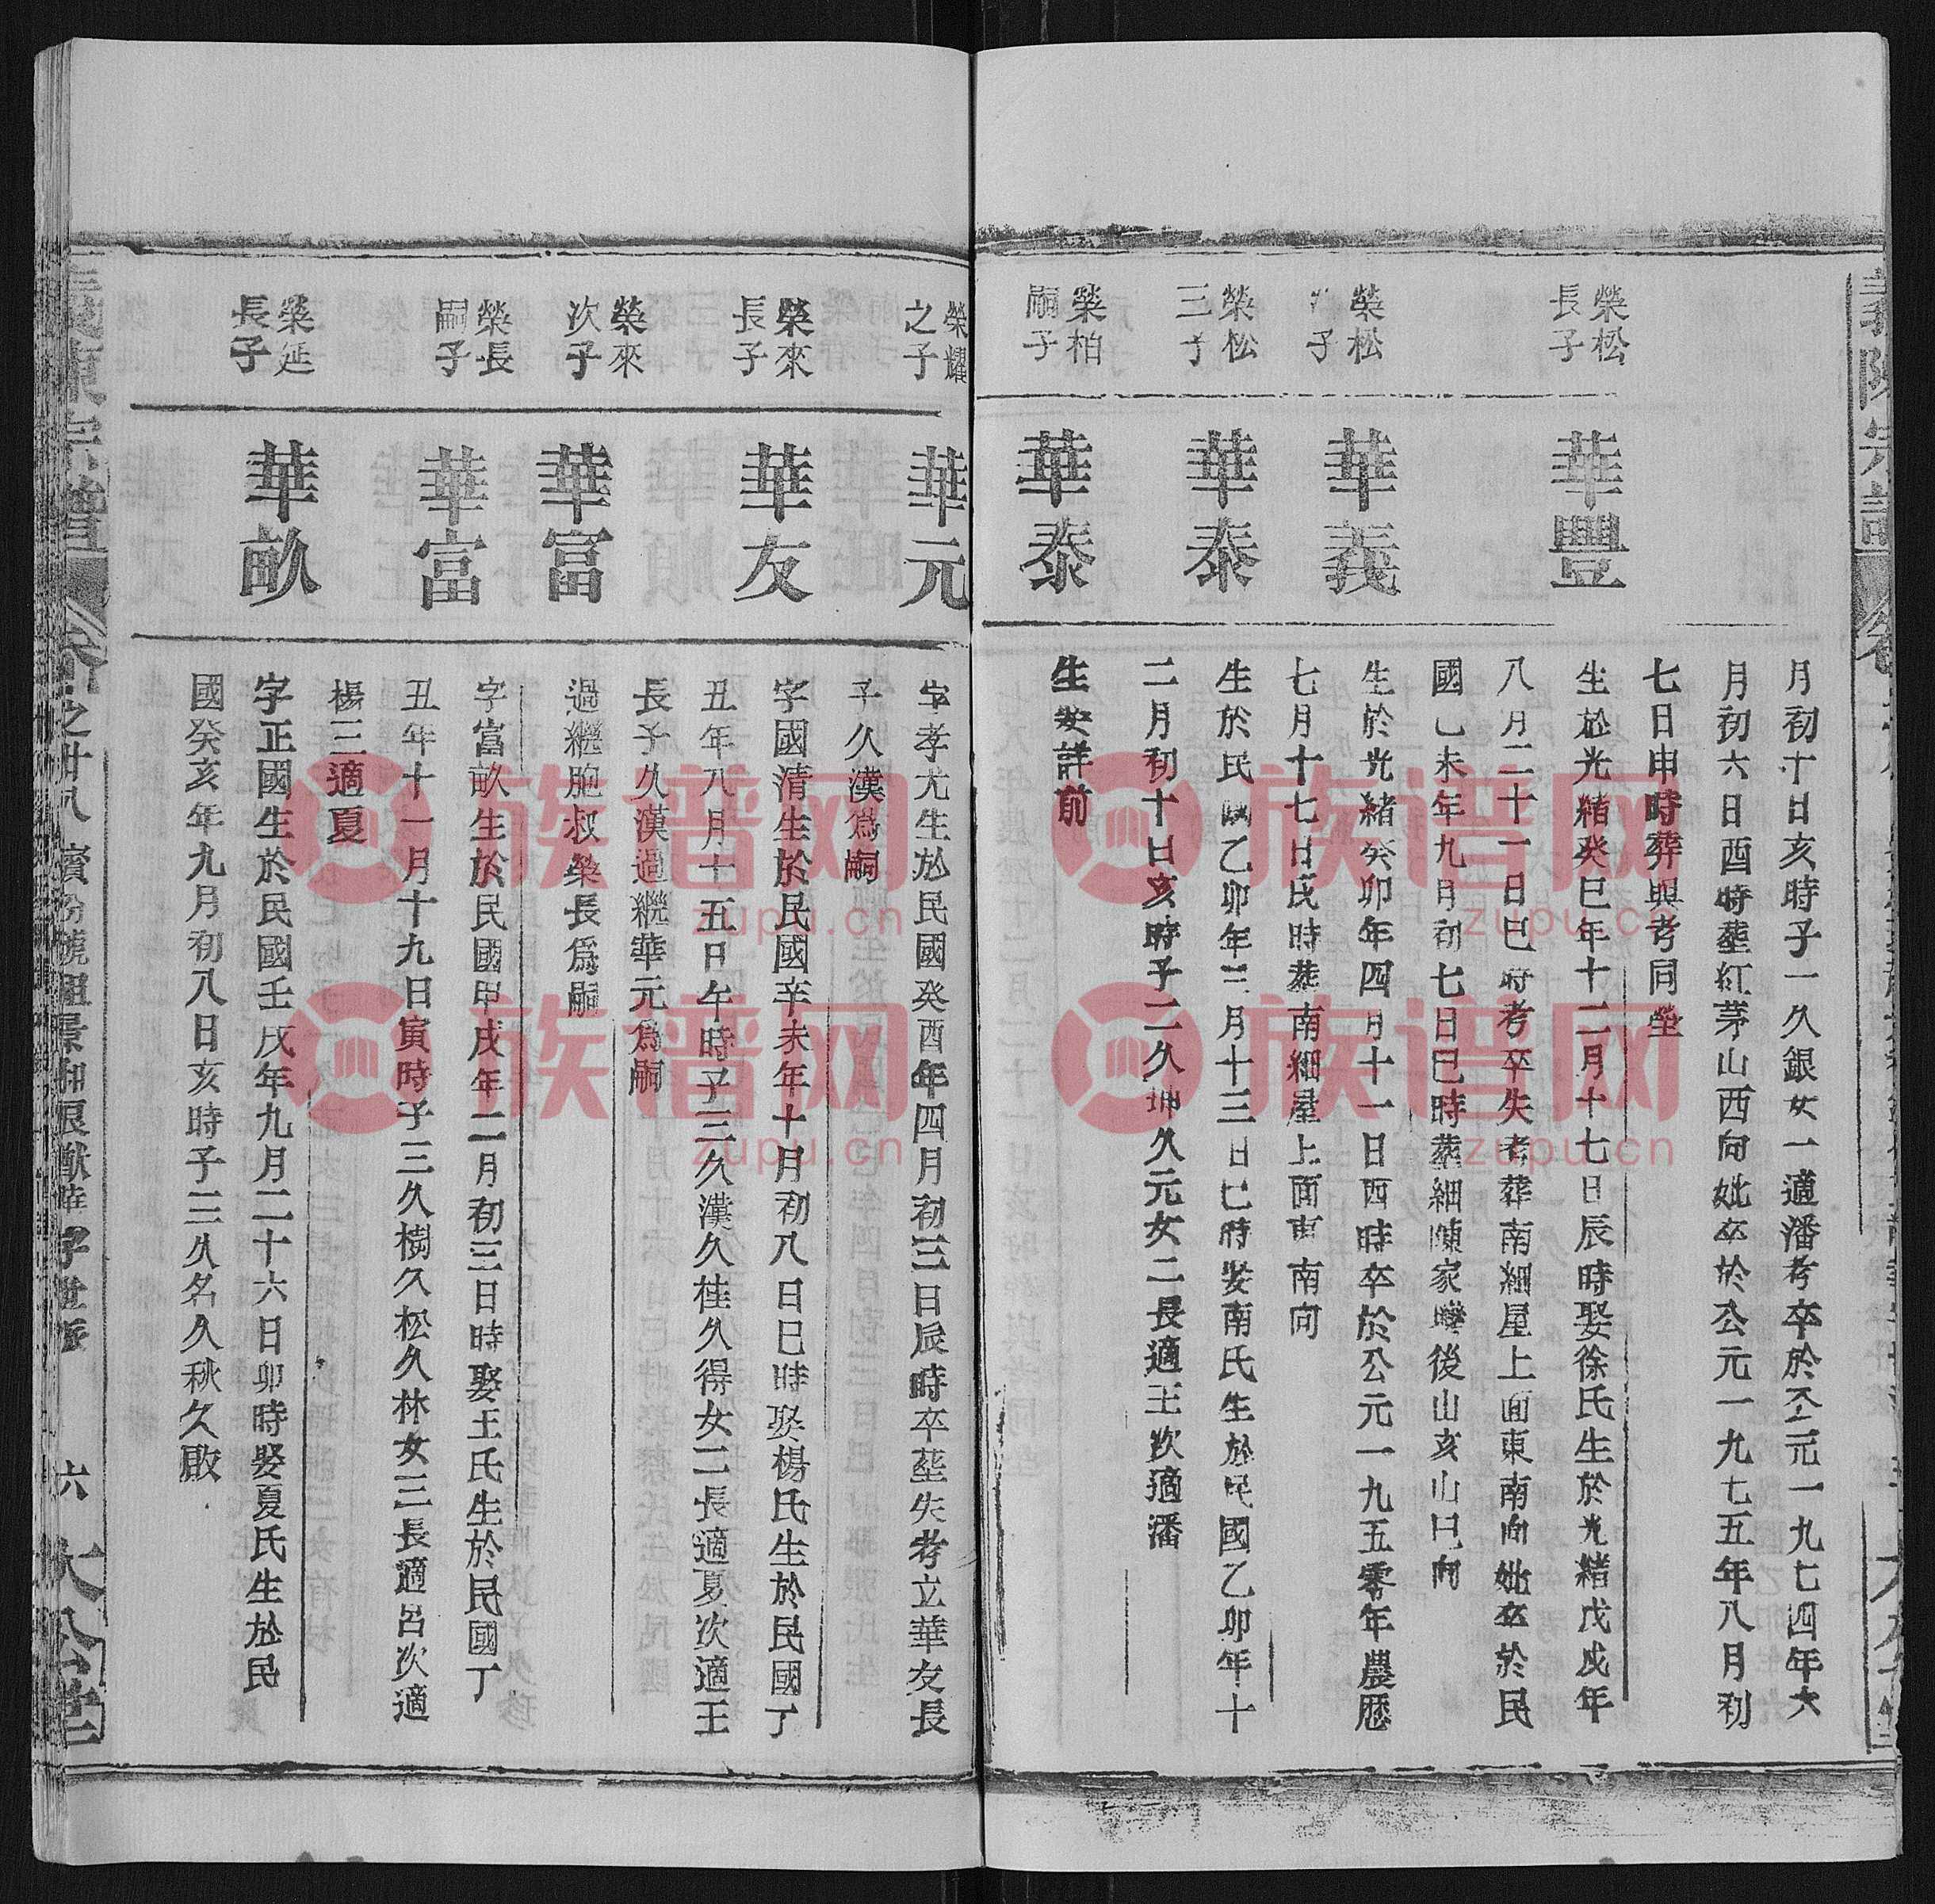 月初十日亥時子一久銀女一適潘考卒於公元一九七四年六
月初六日酉時塟紅茅山西向妣卒於公元一九七五年八月初
七日申時葬與考同塋
榮松
長子
華豐
生於光緒癸巳年十二月十七日辰時娶徐氏生於光緒戊戌年
八月二十一日巳時考卒失考葬南細屋上面東南向妣卒於民
國乙未年九月初七日巳時葬細陳家灣後山亥山巳向
榮松
子
華義
生於光緒癸卯年四月十一日酉時卒於公元一九五零年農歷
七月十七日氏時葬南細屋上面東南向
榮松
三子
華泰
生於民國乙卯年三月十三日巳時娶南氏生於民國乙卯年十
二月初十日亥時子二久坤久元女二長適王次適潘
榮柏
嗣子
華泰
生娶詳前
榮耀
之子
華元
字孝尤生於民國癸酉年四月初三日辰時卒塟失考立華友長
子久漢爲嗣
榮來
長子
華友
字國清生於民國辛未年十月初八日巳時娶楊氏生於民國丁
丑年八月十五日午時子三久漢久桂久得女二長適夏次適王
長子久漢過繼華元爲嗣
榮來
次子
華富
過繼胞叔榮長爲嗣
榮長
嗣子
華富
字富畝生於民國甲戌年二月初三日時娶王氏生於民國丁
丑年十一月十九日寅時子三久樹久松久林女三長適呂次適
楊三適夏
榮延
長子
華畝
字正國生於民國壬戌年九月二十六日卯時娶夏氏生於民
國癸亥年九月初八日亥時子三久名久秋久啟
卷之廿八
六
大公堂
族谱网
zupu.cn
族谱网
zupu.cn
族谱网
zupu.cn
族谱网
zupu.cn